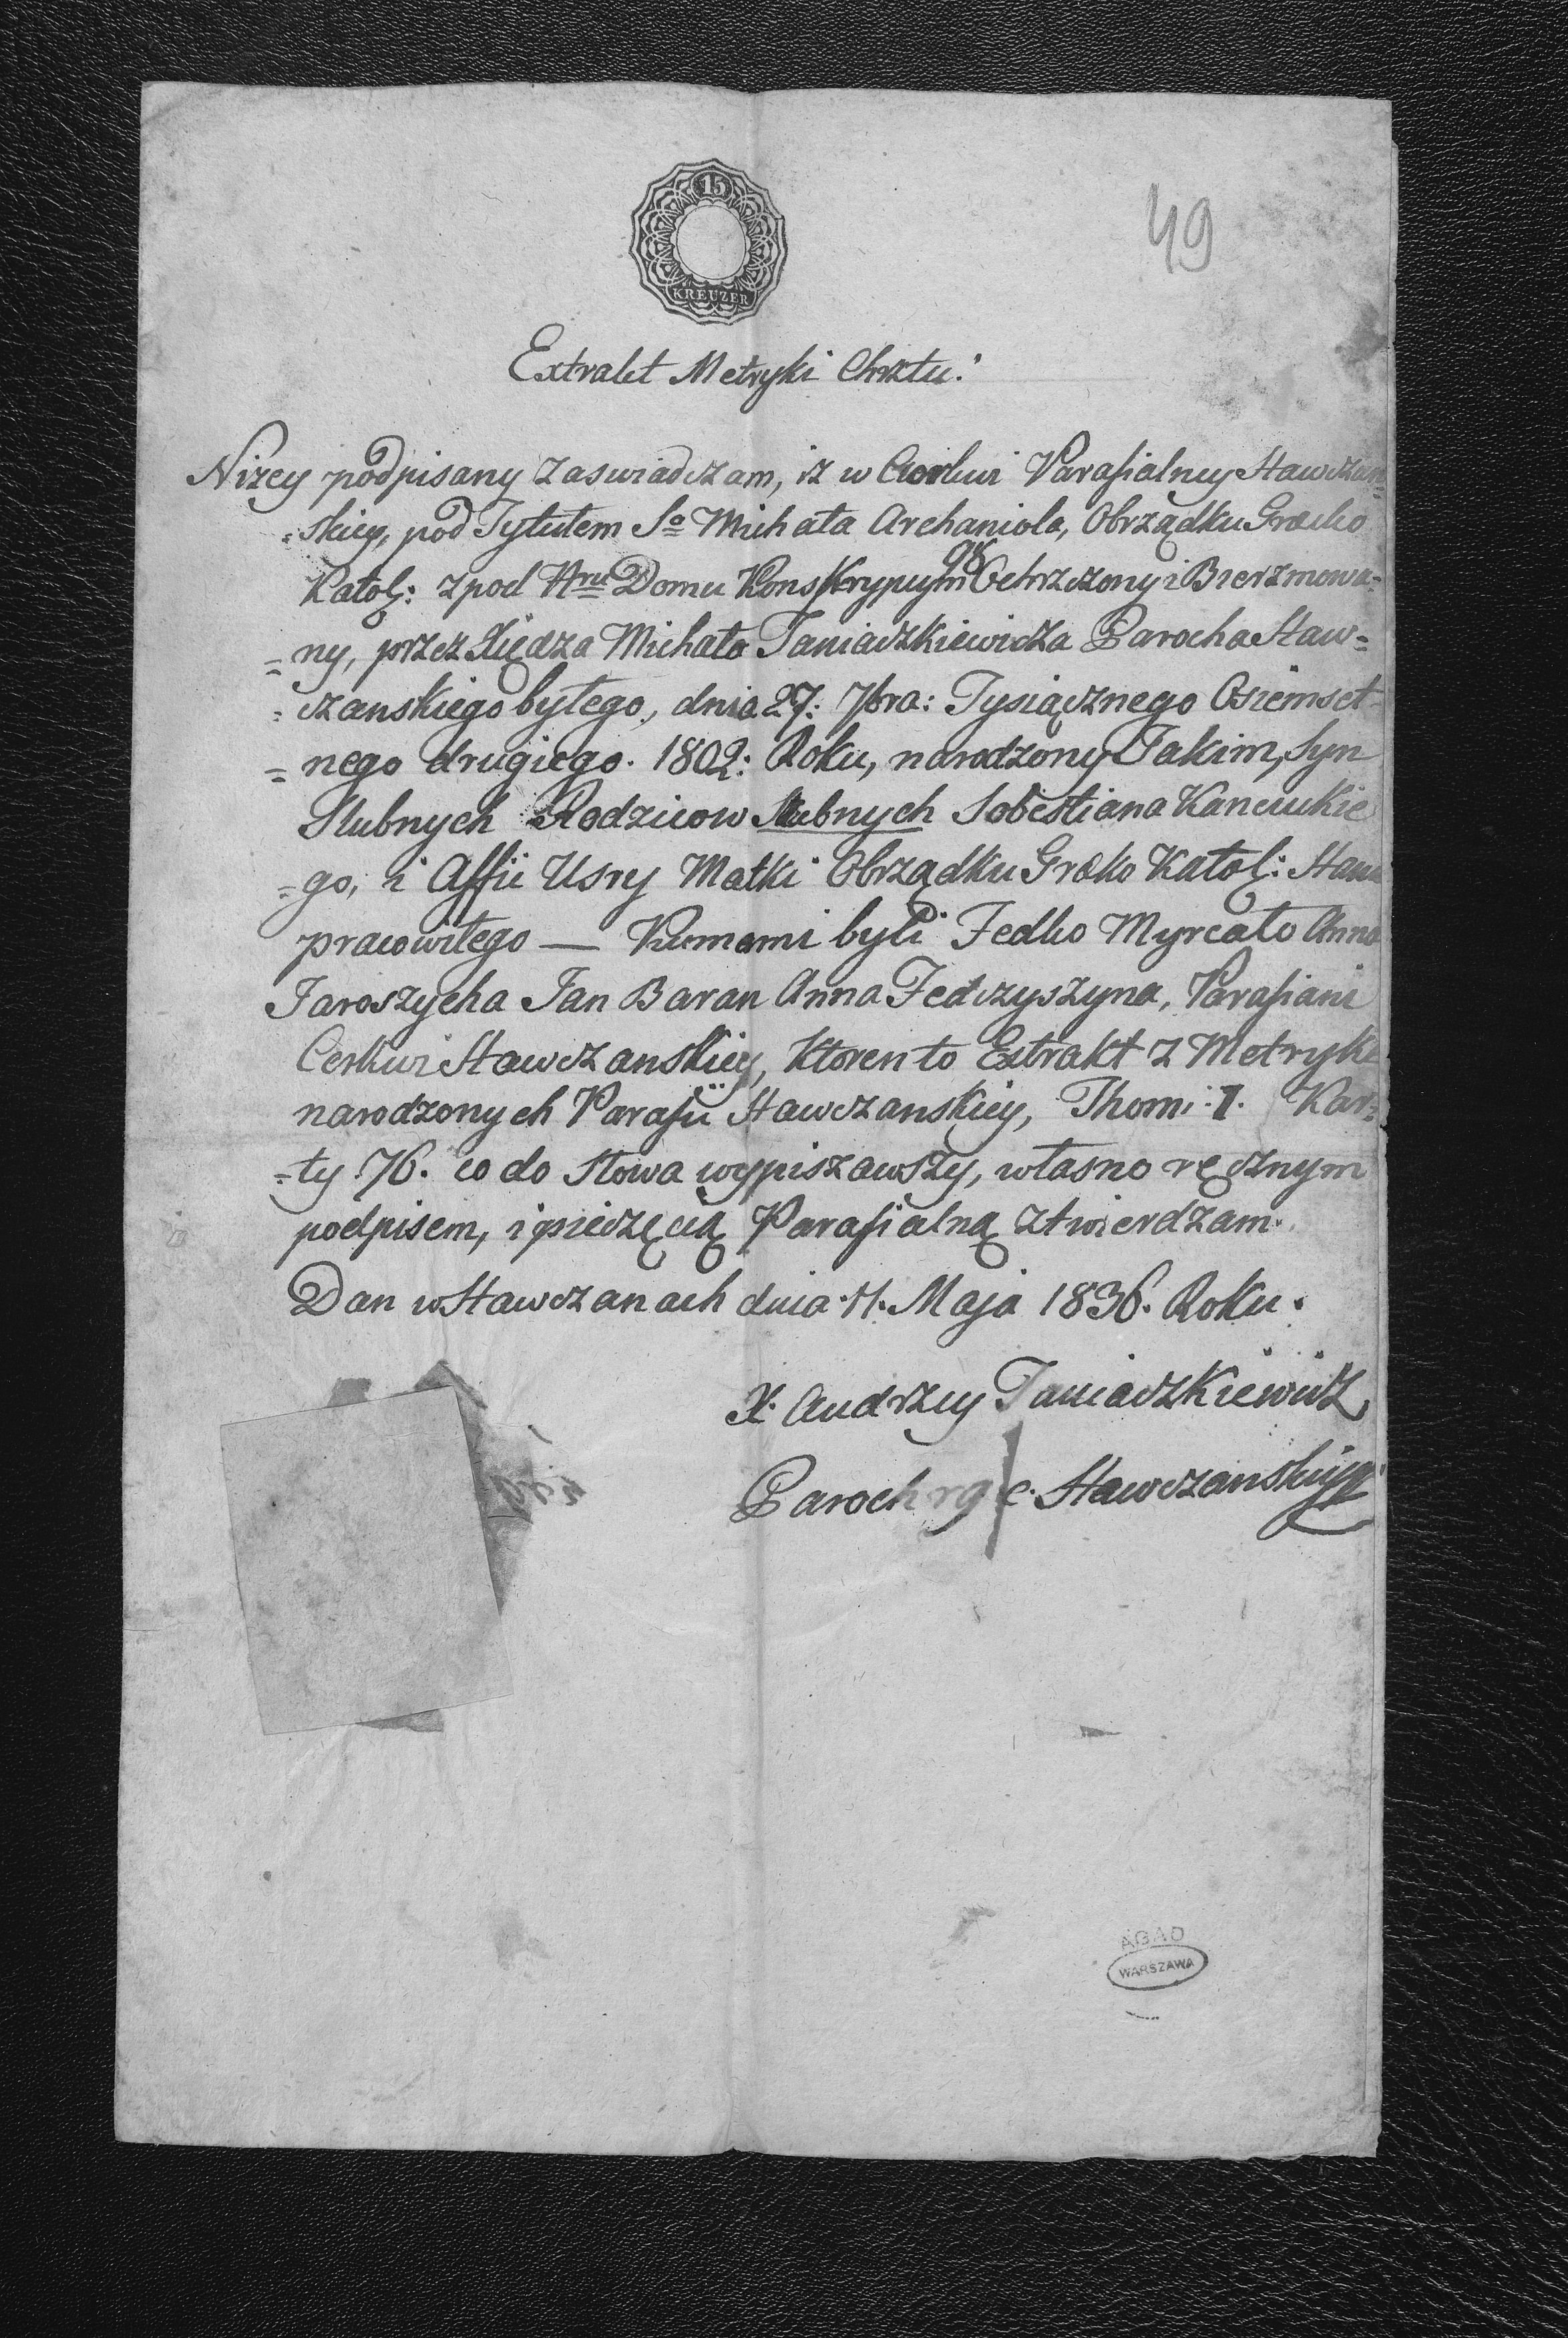 15
KREUZER
49
Extrakt Metryki Chrztu.
Nizey podpisany zaswiadczam, iz w Cerkwi Parafialney Stawczan=
=skiey, pod Tytułem So Michała Archanioła, Obrządku Græcko
Katol: zpod Nru Domu Konskrypcyin Ochrzczony i Bierzmowa=
=ny, przez Xiędza Michała Taniaczkiewicza Parocha Staw=
=czanskiego byłego, dnia 27: 7bra: Tysiącznego Osiemset=
=nego drugiego. 1802: Roku, narodzony Jakim, Syn
Slubnych Rodzicow Slubnych Sobestiana Kanciukie
=go, i Affii Usry Matki Obrządku Græko Katol: Stanu
pracowitego — Kumami byli Fedko Myrcało Anna
Jaroszycha Jan Baran Anna Fedczyszyna, Parafiani
Cerkwi Stawczanskiey, ktoren to Extrakt z Metryki
narodzonych Parafii Stawczanskiey, Thom: I. Kar=
=ty 76. co do słowa wypiszawszy, własno ręcznym
podpisem, i pieczęcią Parafialną ztwierdzam.
Dan w Stawczanach dnia 11. Maja 1836. Roku.
X. Andrzey Taniaczkiewicz
Paroch rg c. Stawczanskiy
AGAD
WARSZAWA